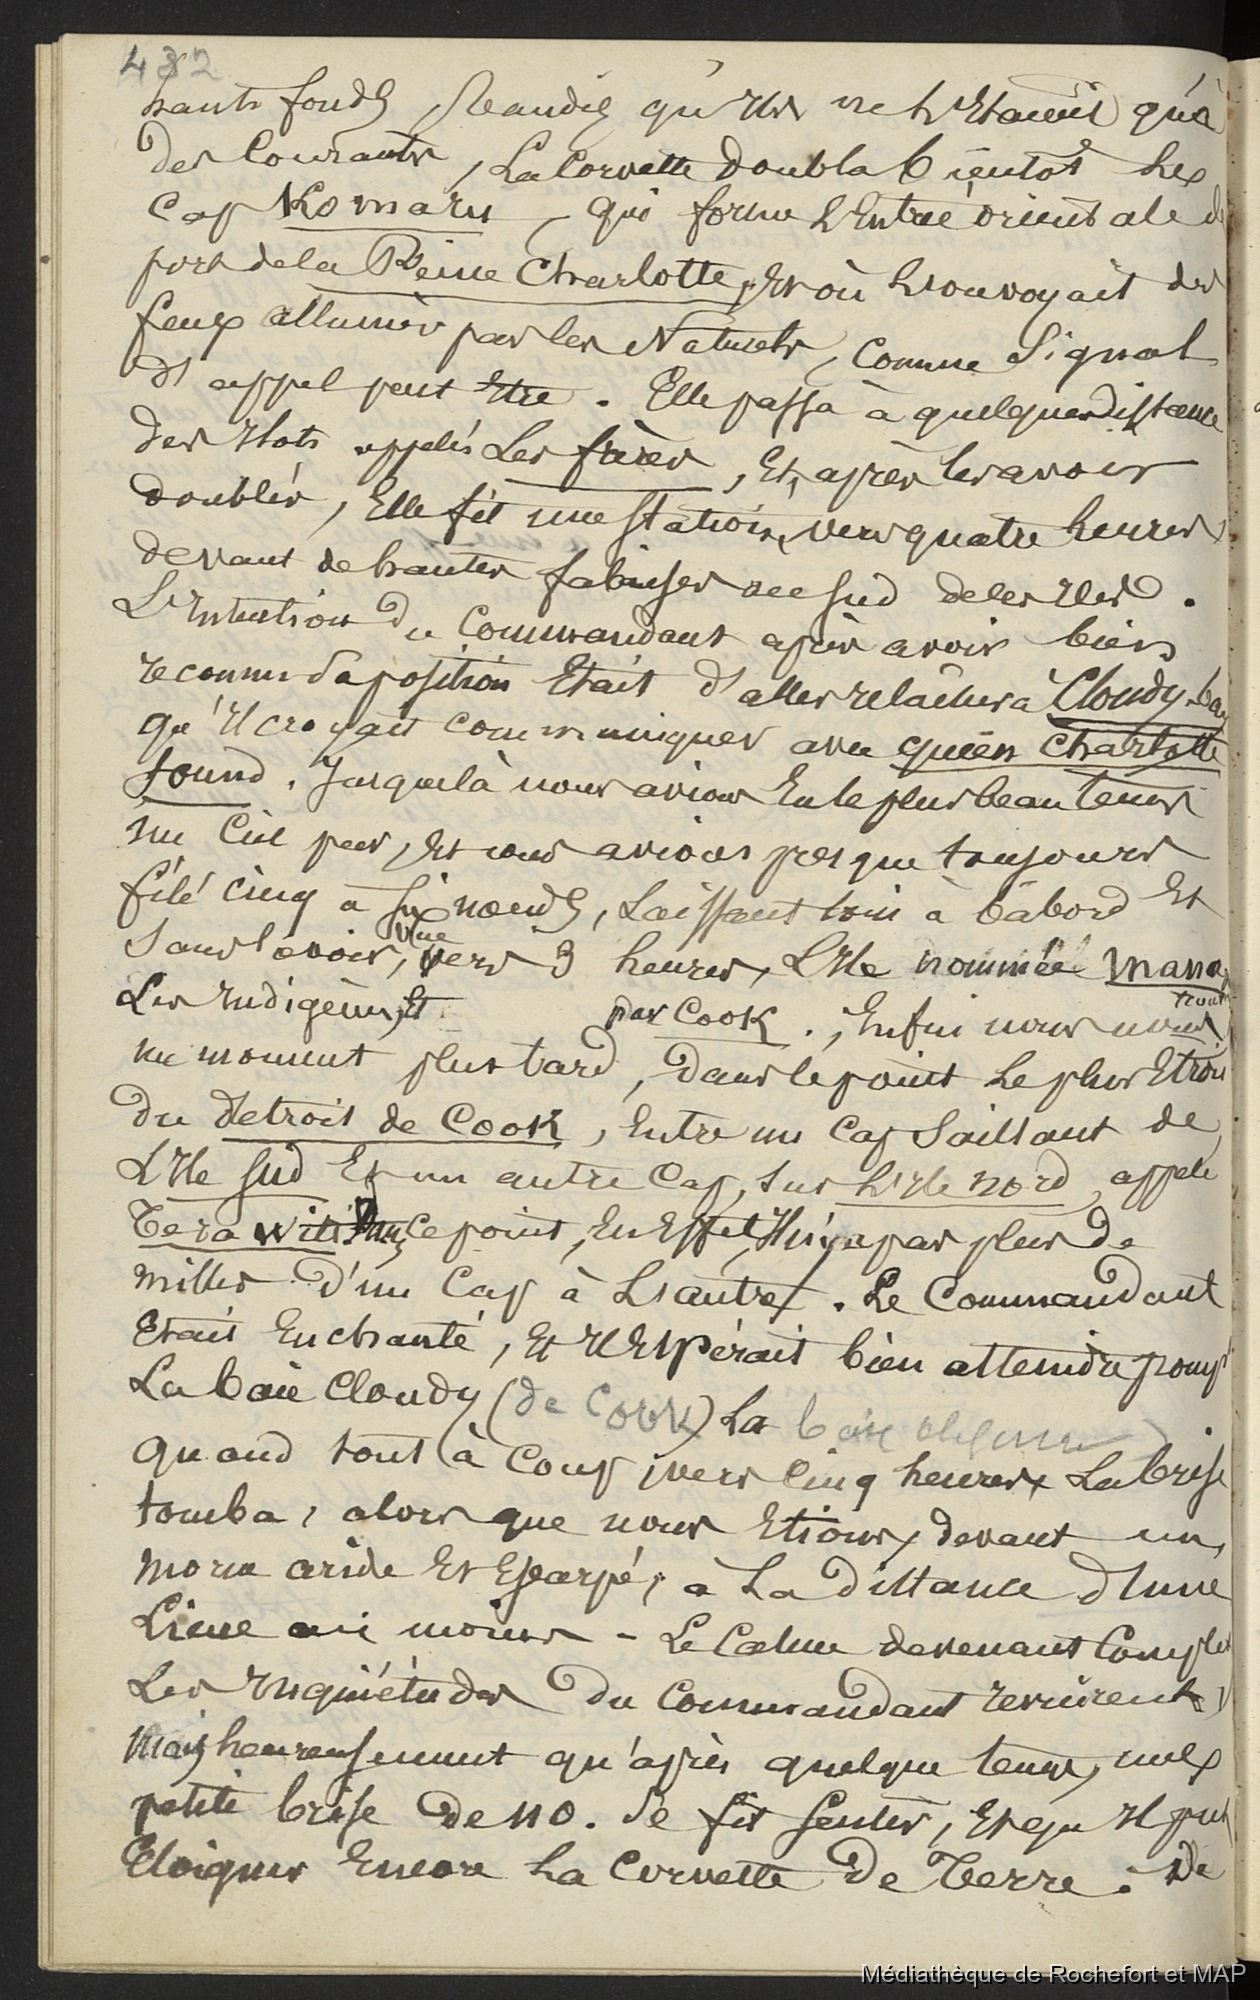 432
hauts fonds, tandis qu'ils ne l'Etaient qu'à
des Courants, La Corvette doubla bientot le
Cap Komaru, qui forme l'Entrée orientale d
port de la Reine Charlotte, Et où l'on voyait des
feux allumés par les Naturels, Comme Signal
d'appel peut Etre. Elle passa à quelques distance
des Ilots appelés Les frères, Et, après les avoir
doublés, Elle fit une station, vers quatre heures,
devant de hautes falaises au sud de les Iles.
L'Intention du Commandant après avoir bien
reconnu sa position Etait d'aller relâcher à Cloudy-bay
qu'Il croyait communiquer avec queen Charlotte
sound. Jusque là nous avions Eu le plus beau temps
un Ciel pur, Et nous avions presque toujours
filé cinq à six nœuds, Laissant loin à bâbord Et
sans l'avoir vue, vers 3 heures, L'Ile nommée mana
Les Indigènes, Et par Cook. Enfin nous nous trouv
un moment plus tard, dans le point le plus Etroi
du détroit de Cook, Entre un Cap Saillant de
L'Ile sud Et un autre Cap, sur L'Ile nord, appelé
Tera witi. ce point, En Effet, Il n'y a pas plus de
milles d'un Cap à L'autre. Le Commandant
Etait Enchanté, Et Il Espérait bien atteindre promp
La baie Cloudy (de Cook) La baie
quand tout à Coup, vers Cinq heures, La brise
tomba, alors que nous Etions, devant un
morne aride Et Escarpé, a La distance d'une
Lieue au moins - Le Calme devenant Complet
Les Inquiétudes du Commandant revinrent,
mais heureusement qu'après quelque temps, une
petite brise de NO. se fit sentir, Et qu'Il put
Eloigner Encore La Corvette de Terre. De
Médiathèque de Rochefort et MAP